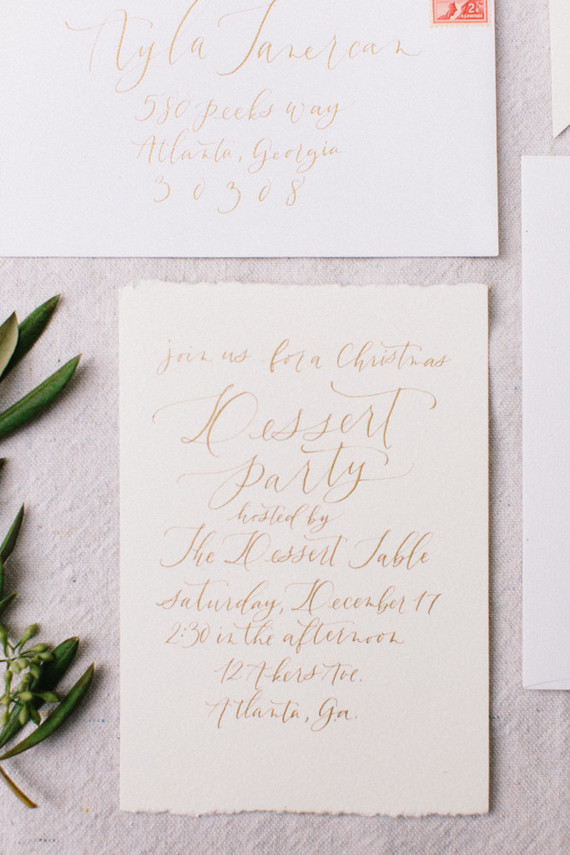 580 Peeks way
Atlanta, Georgia
30308
2¢
join us for a Christmas
Dessert
party
hosted by
The Dessert Table
saturday, December 17
2:30 in the afternoon
12 Akers Ave.
Atlanta, Ga.